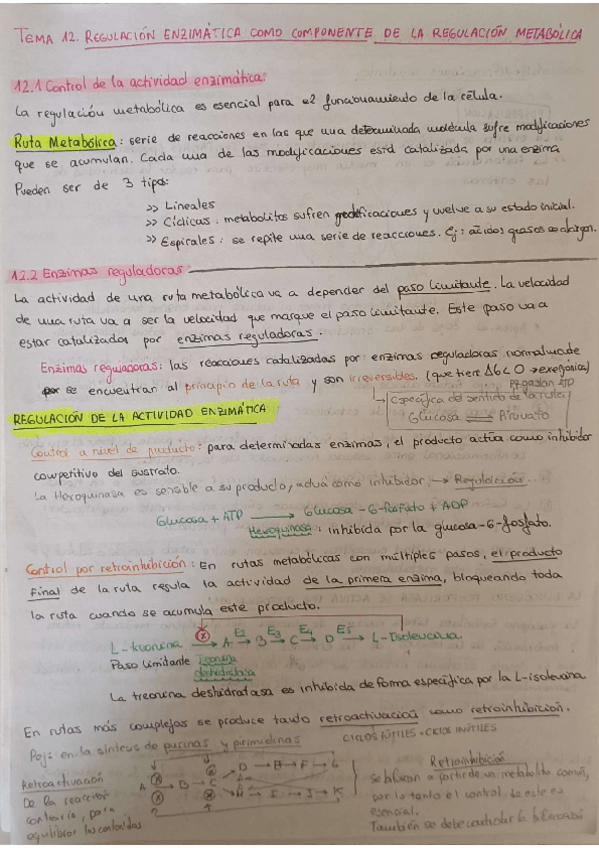 TEMA 12. REGULACIÓN ENZIMÁTICA COMO COMPONENTE DE LA REGULACIÓN METABÓLICA
12.1 Control de la actividad enzimática:
La regulación metabólica es esencial para el funcionamiento de la célula.
Ruta Metabólica: serie de reacciones en las que una determinada molécula sufre modificaciones
que se acumulan. Cada una de las modificaciones está catalizada por una enzima
Pueden ser de 3 tipos:
>> Lineales
>> Cíclicas: metabolitos sufren modificaciones y vuelve a su estado inicial.
>> Espirales: se repite una serie de reacciones. Ej: ácidos grasos
12.2 Enzimas reguladoras
La actividad de una ruta metabólica va a depender del paso limitante. La velocidad
de una ruta va a ser la velocidad que marque el paso limitante. Este paso va a
estar catalizado por enzimas reguladoras.
Enzimas reguladoras: las reacciones catalizadas por enzimas reguladoras normalmente
se encuentran al principio de la ruta y son irreversibles. (que tiene ΔG<0 → exergónica)
ATP
REGULACIÓN DE LA ACTIVIDAD ENZIMÁTICA
Específica del sentido de la ruta
Glucosa ⇌ Piruvato
Control a nivel de producto: para determinadas enzimas, el producto actúa como inhibidor
competitivo del sustrato.
La Hexoquinasa es sensible a su producto, actúa como inhibidor → Regulación.
Glucosa + ATP → Glucosa-6-fosfato + ADP
Hexoquinasa: inhibida por la glucosa-6-fosfato.
Control por retroinhibición: En rutas metabólicas con múltiples pasos, el producto
final de la ruta regula la actividad de la primera enzima, bloqueando toda
la ruta cuando se acumula este producto.
L-treonina → A E2→ B E3→ C E4→ D E5→ L-Isoleucina
Paso limitante Treonina
deshidratasa
La treonina deshidratasa es inhibida de forma específica por la L-isoleucina
En rutas más complejas se produce tanto retroactivación como retroinhibición.
P.ej: en la síntesis de purinas y pirimidinas
CICLOS FÚTILES = CICLOS INÚTILES
Retroactivación
De la reacción
contraria, para
equilibrar las cantidades
A → B → C
D → E → F → G
H → I → J → K
Retroinhibición
Se bifurcan a partir de un metabolito común,
por lo tanto el control de este es
esencial.
También se debe controlar la bifurcación